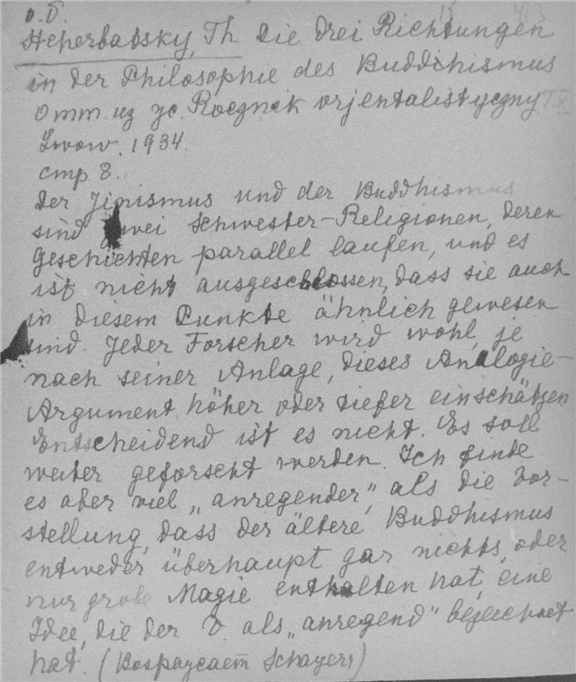 о.б.
Scherbatsky, Th. Die drei Richtungen
in der Philosophie des Buddhismus
Отт. из ж. Rocznik orjentalistyczny TX
Lwow. 1934.
стр. 8.
Der Jinismus und der Buddhismus
sind zwei Schwester-Religionen, deren
Geschichten parallel laufen, und es
ist nicht ausgeschlossen, dass sie auch
in diesem Punkte ähnlich gewesen
sind. Jeder Forscher wird wohl, je
nach seiner Anlage, dieses Analogie-
Argument höher oder tiefer einschätzen
Entscheidend ist es nicht. Es soll
weiter geforscht werden. Ich finde
es aber viel „anregender", als die Vor-
stellung, dass der ältere Buddhismus
entweder überhaupt gar nichts, oder
nur grobe Magie enthalten hat, eine
Idee, die der V. als „anregend" bezeichnet
hat. (Возражает Schayer)